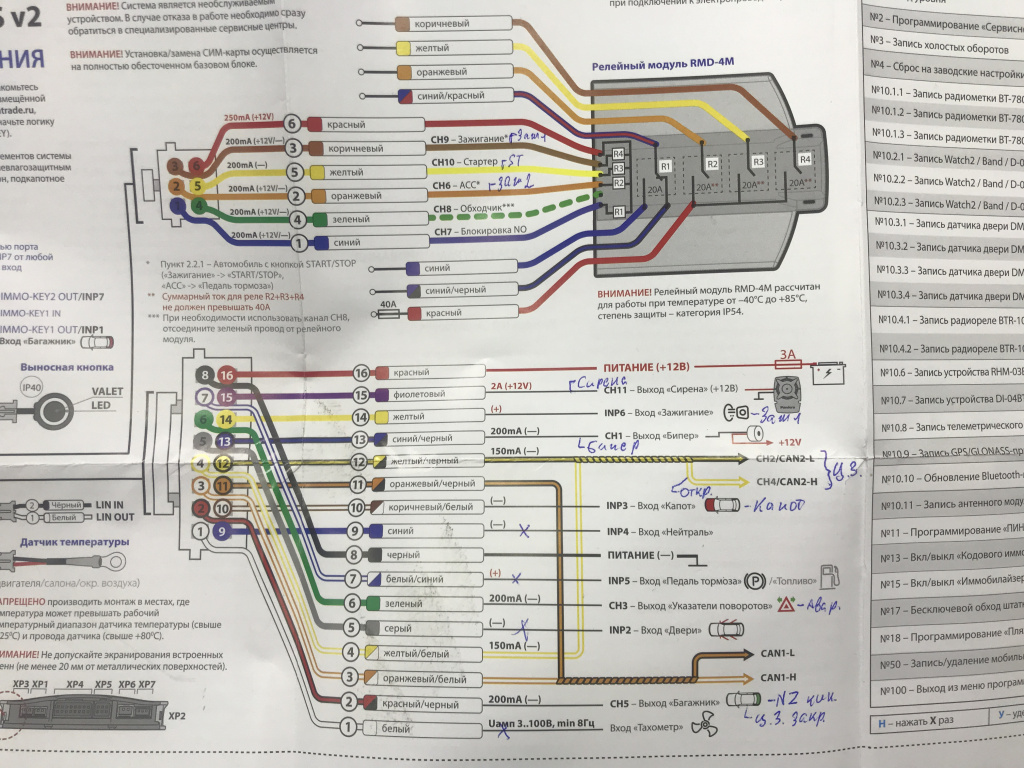 S v2
НИЯ
ВНИМАНИЕ! Система является необслуживаемым
устройством. В случае отказа в работе необходимо сразу
обратиться в специализированные сервисные центры.
ВНИМАНИЕ! Установка/замена СИМ-карты осуществляется
на полностью обесточенном базовом блоке.
при подключении к
коричневый
желтый
оранжевый
синий/красный
Релейный модуль RMD-4M
250mA (+12V)
6 красный
3 коричневый
CH9 – Зажигание*
Заж1
200mA (—)
5 желтый
CH10 – Стартер
ST
200mA (+12V/—)
2 оранжевый
CH6 – ACC*
Заж2
200mA (+12V/—)
4 зеленый
CH8 – Обходчик***
200mA (+12V/—)
1 синий
CH7 – Блокировка NO
3 6
2 5
1 4
R4
R3
R2
R1
R1
R2
R3
R4
20A
20A**
20A**
20A**
* Пункт 2.2.1 – Автомобиль с кнопкой START/STOP
(«Зажигание» -> «START/STOP»,
«ACC» -> «Педаль тормоза»)
** Суммарный ток для реле R2+R3+R4
не должен превышать 40А
*** При необходимости использовать канал CH8,
отсоедините зеленый провод от релейного
модуля.
синий
синий/черный
40A
красный
ВНИМАНИЕ! Релейный модуль RMD-4M рассчитан
для работы при температуре от –40°C до +85°C,
степень защиты – категория IP54.
IMMO-KEY2 OUT/INP7
IMMO-KEY1 IN
IMMO-KEY1 OUT/INP1
Вход «Багажник»
Выносная кнопка
IP40
VALET
LED
2 Чёрный LIN IN
1 Белый LIN OUT
Датчик температуры
двигателя/салона/окр. воздуха)
ЗАПРЕЩЕНО производить монтаж в местах, где
температура может превышать рабочий
температурный диапазон датчика температуры (свыше
125°C) и провода датчика (свыше +80°C).
ВНИМАНИЕ! Не допускайте экранирования встроенных
антенн (не менее 20 мм от металлических поверхностей).
XP3 XP1 XP4 XP5 XP6 XP7
XP2
8 16
7 15
6 14
5 13
4 12
3 11
2 10
1 9
16 красный
ПИТАНИЕ (+12В)
3А
15 фиолетовый
2A (+12V)
Сирена
CH11 – Выход «Сирена» (+12В)
14 желтый
(+)
INP6 – Вход «Зажигание»
Заж1
13 синий/черный
200mA (—)
CH1 – Выход «Бипер»
+12V
Бипер
12 желтый/черный
150mA (—)
CH2/CAN2-L
CH4/CAN2-H
Ц.З.
Откр.
11 оранжевый/черный
10 коричневый/белый
(—)
INP3 – Вход «Капот»
Капот
9 синий
(—)
INP4 – Вход «Нейтраль»
8 черный
ПИТАНИЕ (—)
7 белый/синий
(+)
INP5 – Вход «Педаль тормоза» (P) /«Топливо»
6 зеленый
200mA (—)
CH3 – Выход «Указатели поворотов»
Авар.
5 серый
(—)
INP2 – Вход «Двери»
4 желтый/белый
150mA (—)
CAN1-L
3 оранжевый/белый
CAN1-H
2 красный/черный
200mA (—)
CH5 – Выход «Багажник»
Ц.З. закр.
1 белый
Uамп 3..100В, min 8Гц
Вход «Тахометр»
№2 – Программирование «Сервисн
№3 – Запись холостых оборотов
№4 – Сброс на заводские настройки
№10.1.1 – Запись радиометки BT-780
№10.1.2 – Запись радиометки BT-780
№10.1.3 – Запись радиометки BT-780
№10.2.1 – Запись Watch2 / Band / D-0
№10.2.2 – Запись Watch2 / Band / D-0
№10.2.3 – Запись Watch2 / Band / D-0
№10.3.1 – Запись датчика двери DM
№10.3.2 – Запись датчика двери DM
№10.3.3 – Запись датчика двери DM
№10.3.4 – Запись датчика двери DM
№10.4.1 – Запись радиореле BTR-10
№10.4.2 – Запись радиореле BTR-10
№10.6 – Запись устройства RHM-03B
№10.7 – Запись устройства DI-04BT
№10.8 – Запись телеметрического
№10.9 – Запись GPS/GLONASS-пр
№10.10 – Обновление Bluetooth-
№10.11 – Запись антенного моду
№11 – Программирование «ПИН
№13 – Вкл/выкл «Кодового иммо
№15 – Вкл/выкл «Иммобилайзер
№17 – Бесключевой обход штатн
№18 – Программирование «Пля
№50 – Запись/удаление мобиль
№100 – Выход из меню програм
Н – нажать X раз
У – уд